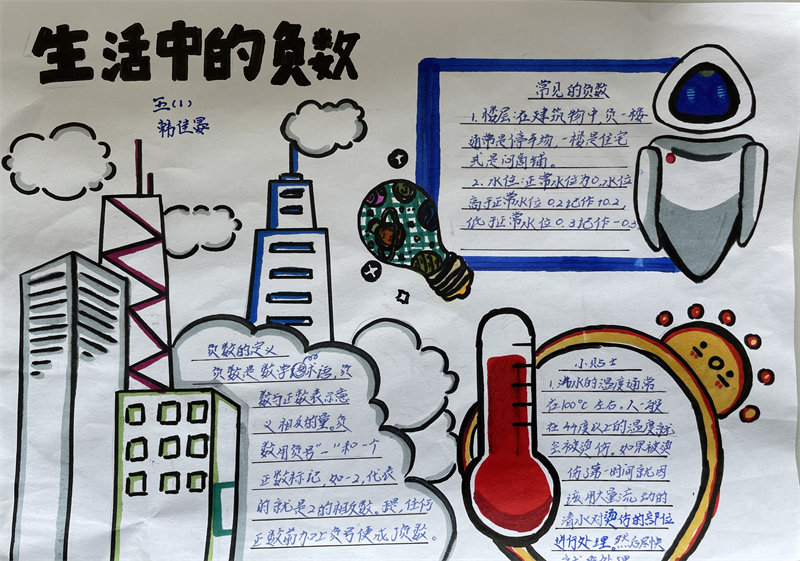 生活中的负数
五(1)
韩佳晏
常见的负数
1.楼层:在建筑物中负一楼
通常是停车场,一楼是住宅
或是问商铺。
2.水位:正常水位为0,水位
高于正常水位0.2记作+0.2,
低于正常水位0.3记作-0.3
负数的定义
负数是数学术语,负
数与正数表示意
义相反的量。负
数用负号“-”和一个
正数标记,如-2,代表
的就是2的相反数。任何
正数前加上负号便成了负数。
小贴士
1.沸水的温度通常
在100℃左右,人一般
在44度以上的温度就
会被烫伤。如果被烫
伤了第一时间就因
该用大量流动的
清水对烫伤的部位
进行处理。然后尽快